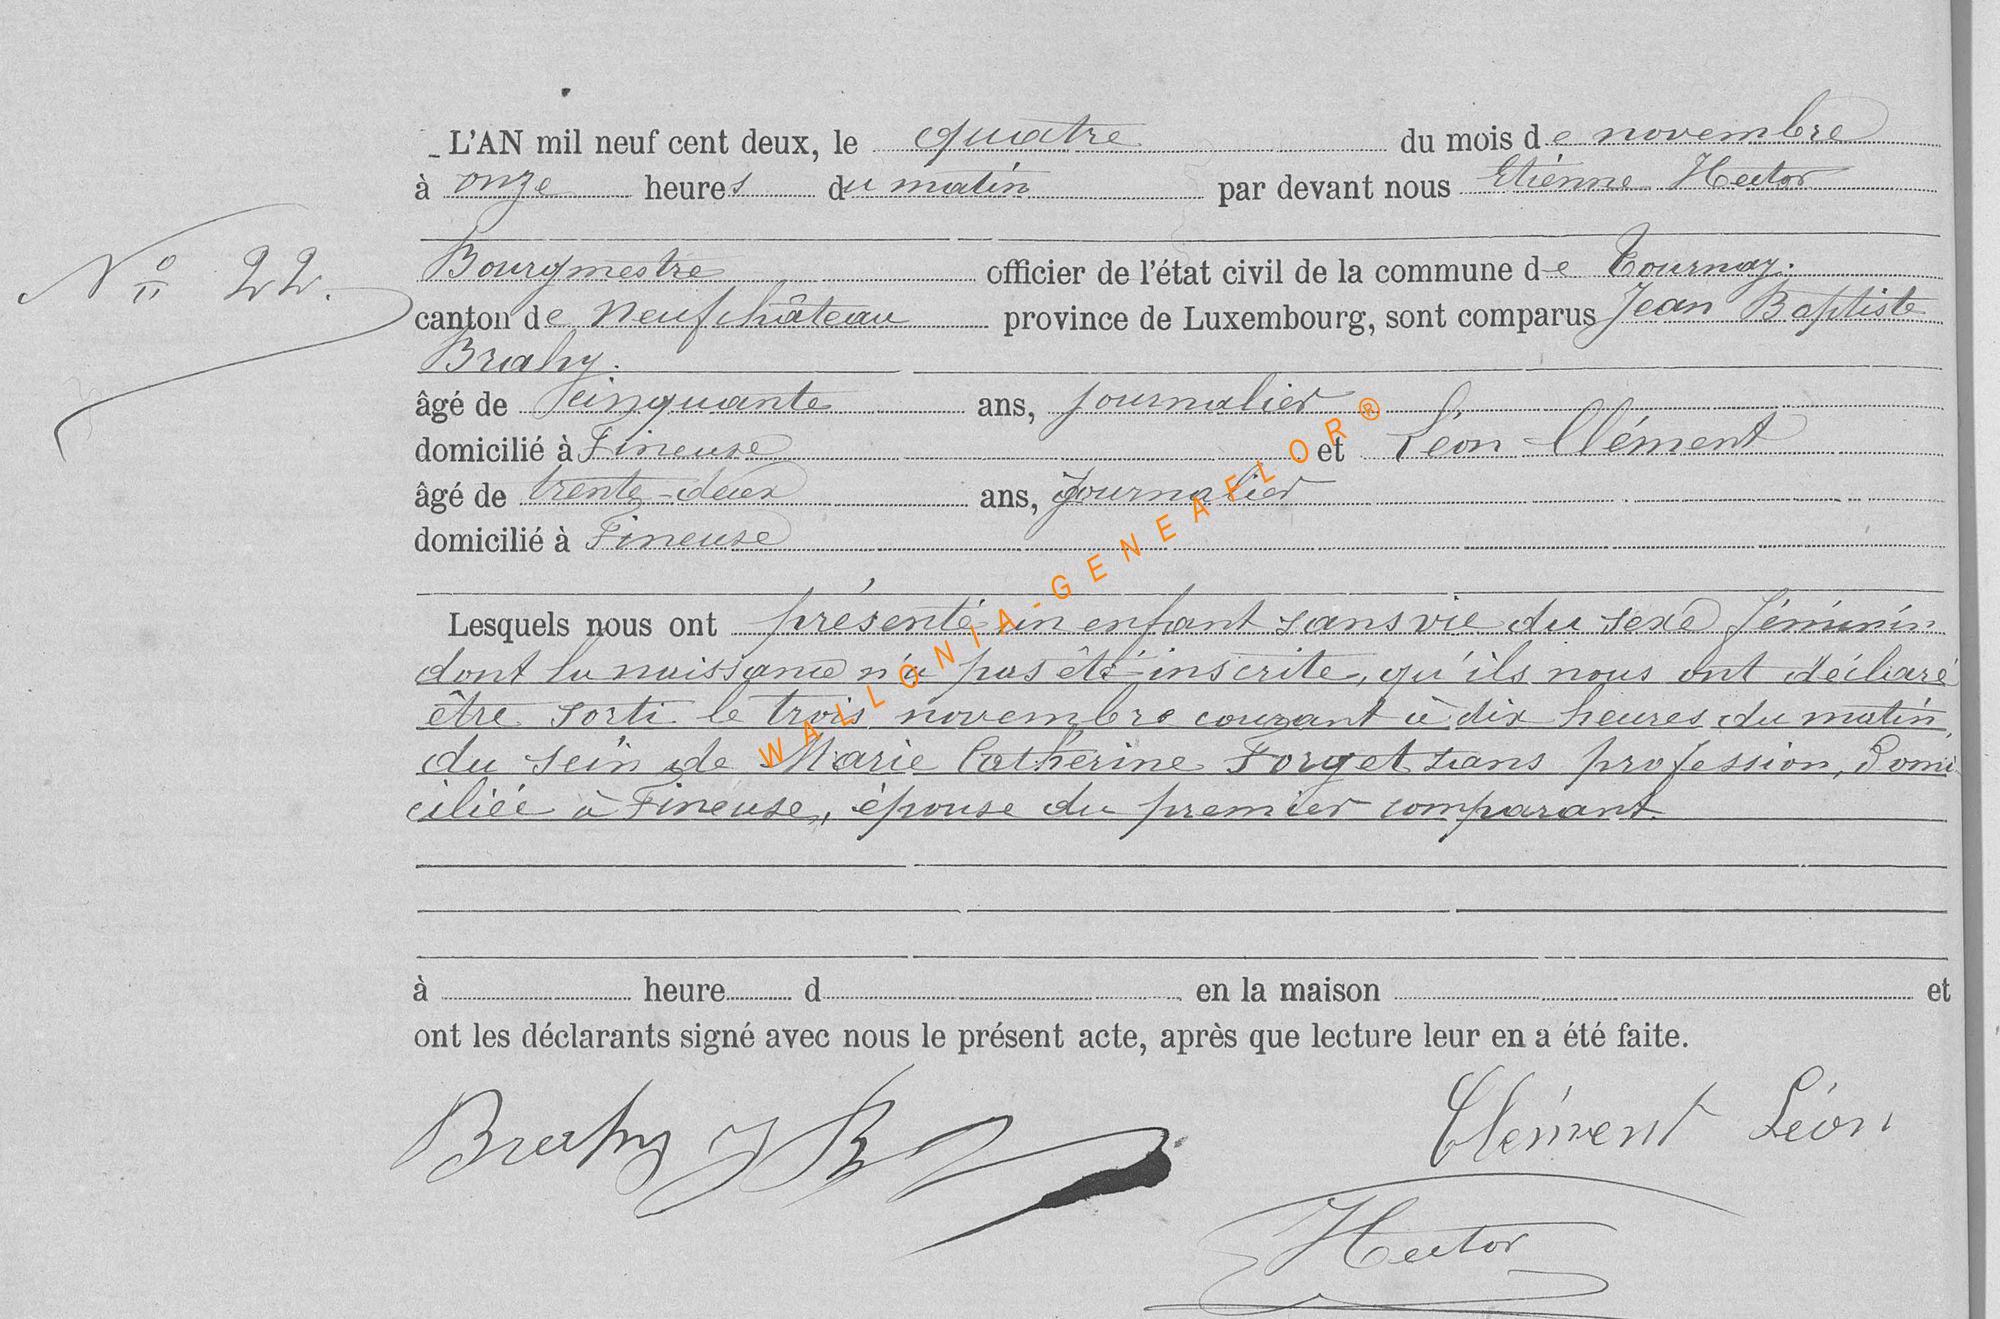 L'AN mil neuf cent deux, le quatre du mois de novembre
à onze heures du matin par devant nous Etienne Hector
N° 22.
Bourgmestre officier de l'état civil de la commune de Tournay.
canton de Neufchâteau province de Luxembourg, sont comparus Jean Baptiste
Brahy.
âgé de cinquante ans, journalier
domicilié à Fineuse et Léon Clément
âgé de trente-deux ans, journalier
domicilié à Fineuse
Lesquels nous ont présenté un enfant sans vie du sexe féminin
dont la naissance n'a pas été inscrite, qu'ils nous ont déclaré
être sorti le trois novembre courant à dix heures du matin,
du sein de Marie Catherine Forget sans profession, domi-
ciliée à Fineuse, épouse du premier comparant.
à heure d en la maison et
ont les déclarants signé avec nous le présent acte, après que lecture leur en a été faite.
Brahy J B
Clément Léon
Hector
WALLONIA-GENEAFLOR®